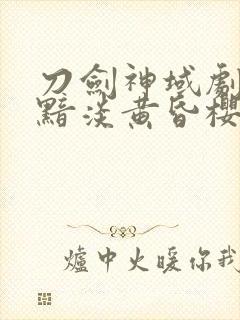 刀劍神域劇
黯淡黃昏櫻
爐中火暖你我